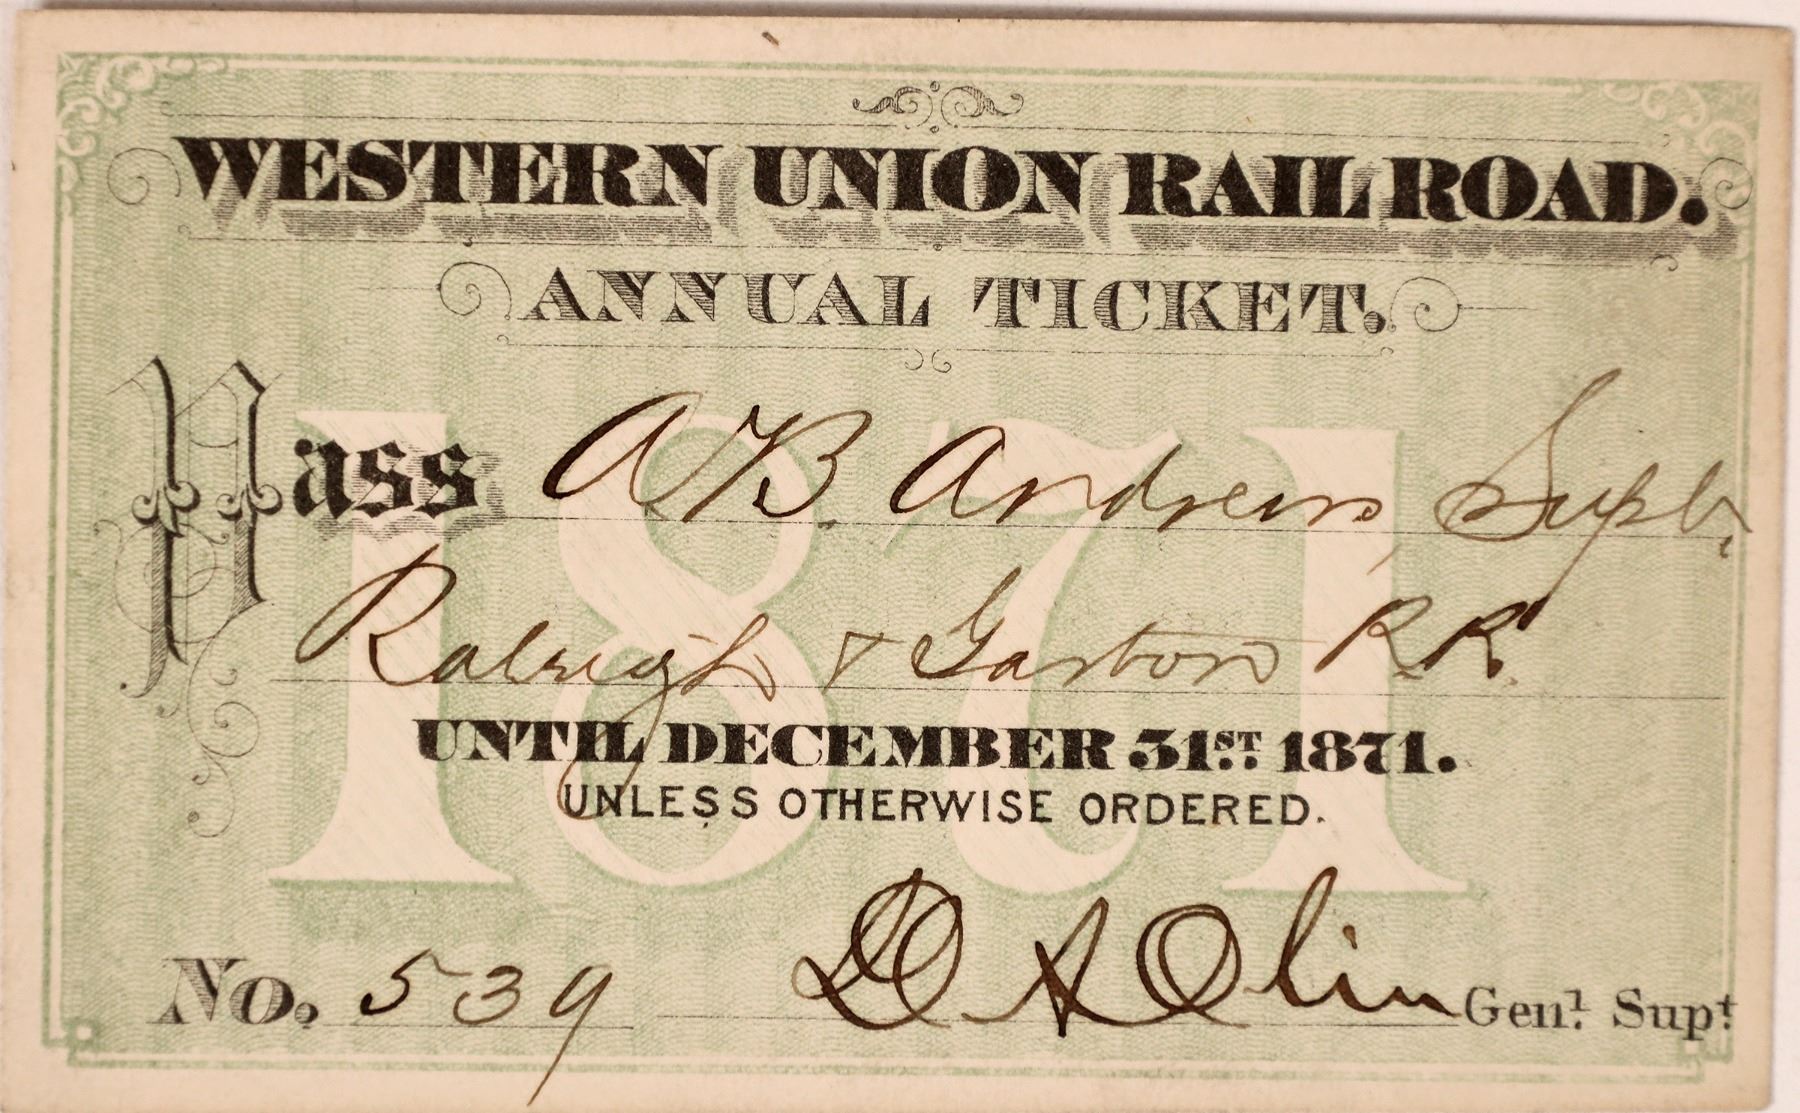 WESTERN UNION RAIL ROAD.
ANNUAL TICKET.
Pass A B. Andrews, Supt.
Raleigh & Gaston R.R.
1871
UNTIL DECEMBER 31ST. 1871.
UNLESS OTHERWISE ORDERED.
No. 539 D A Olin Genl. Supt.